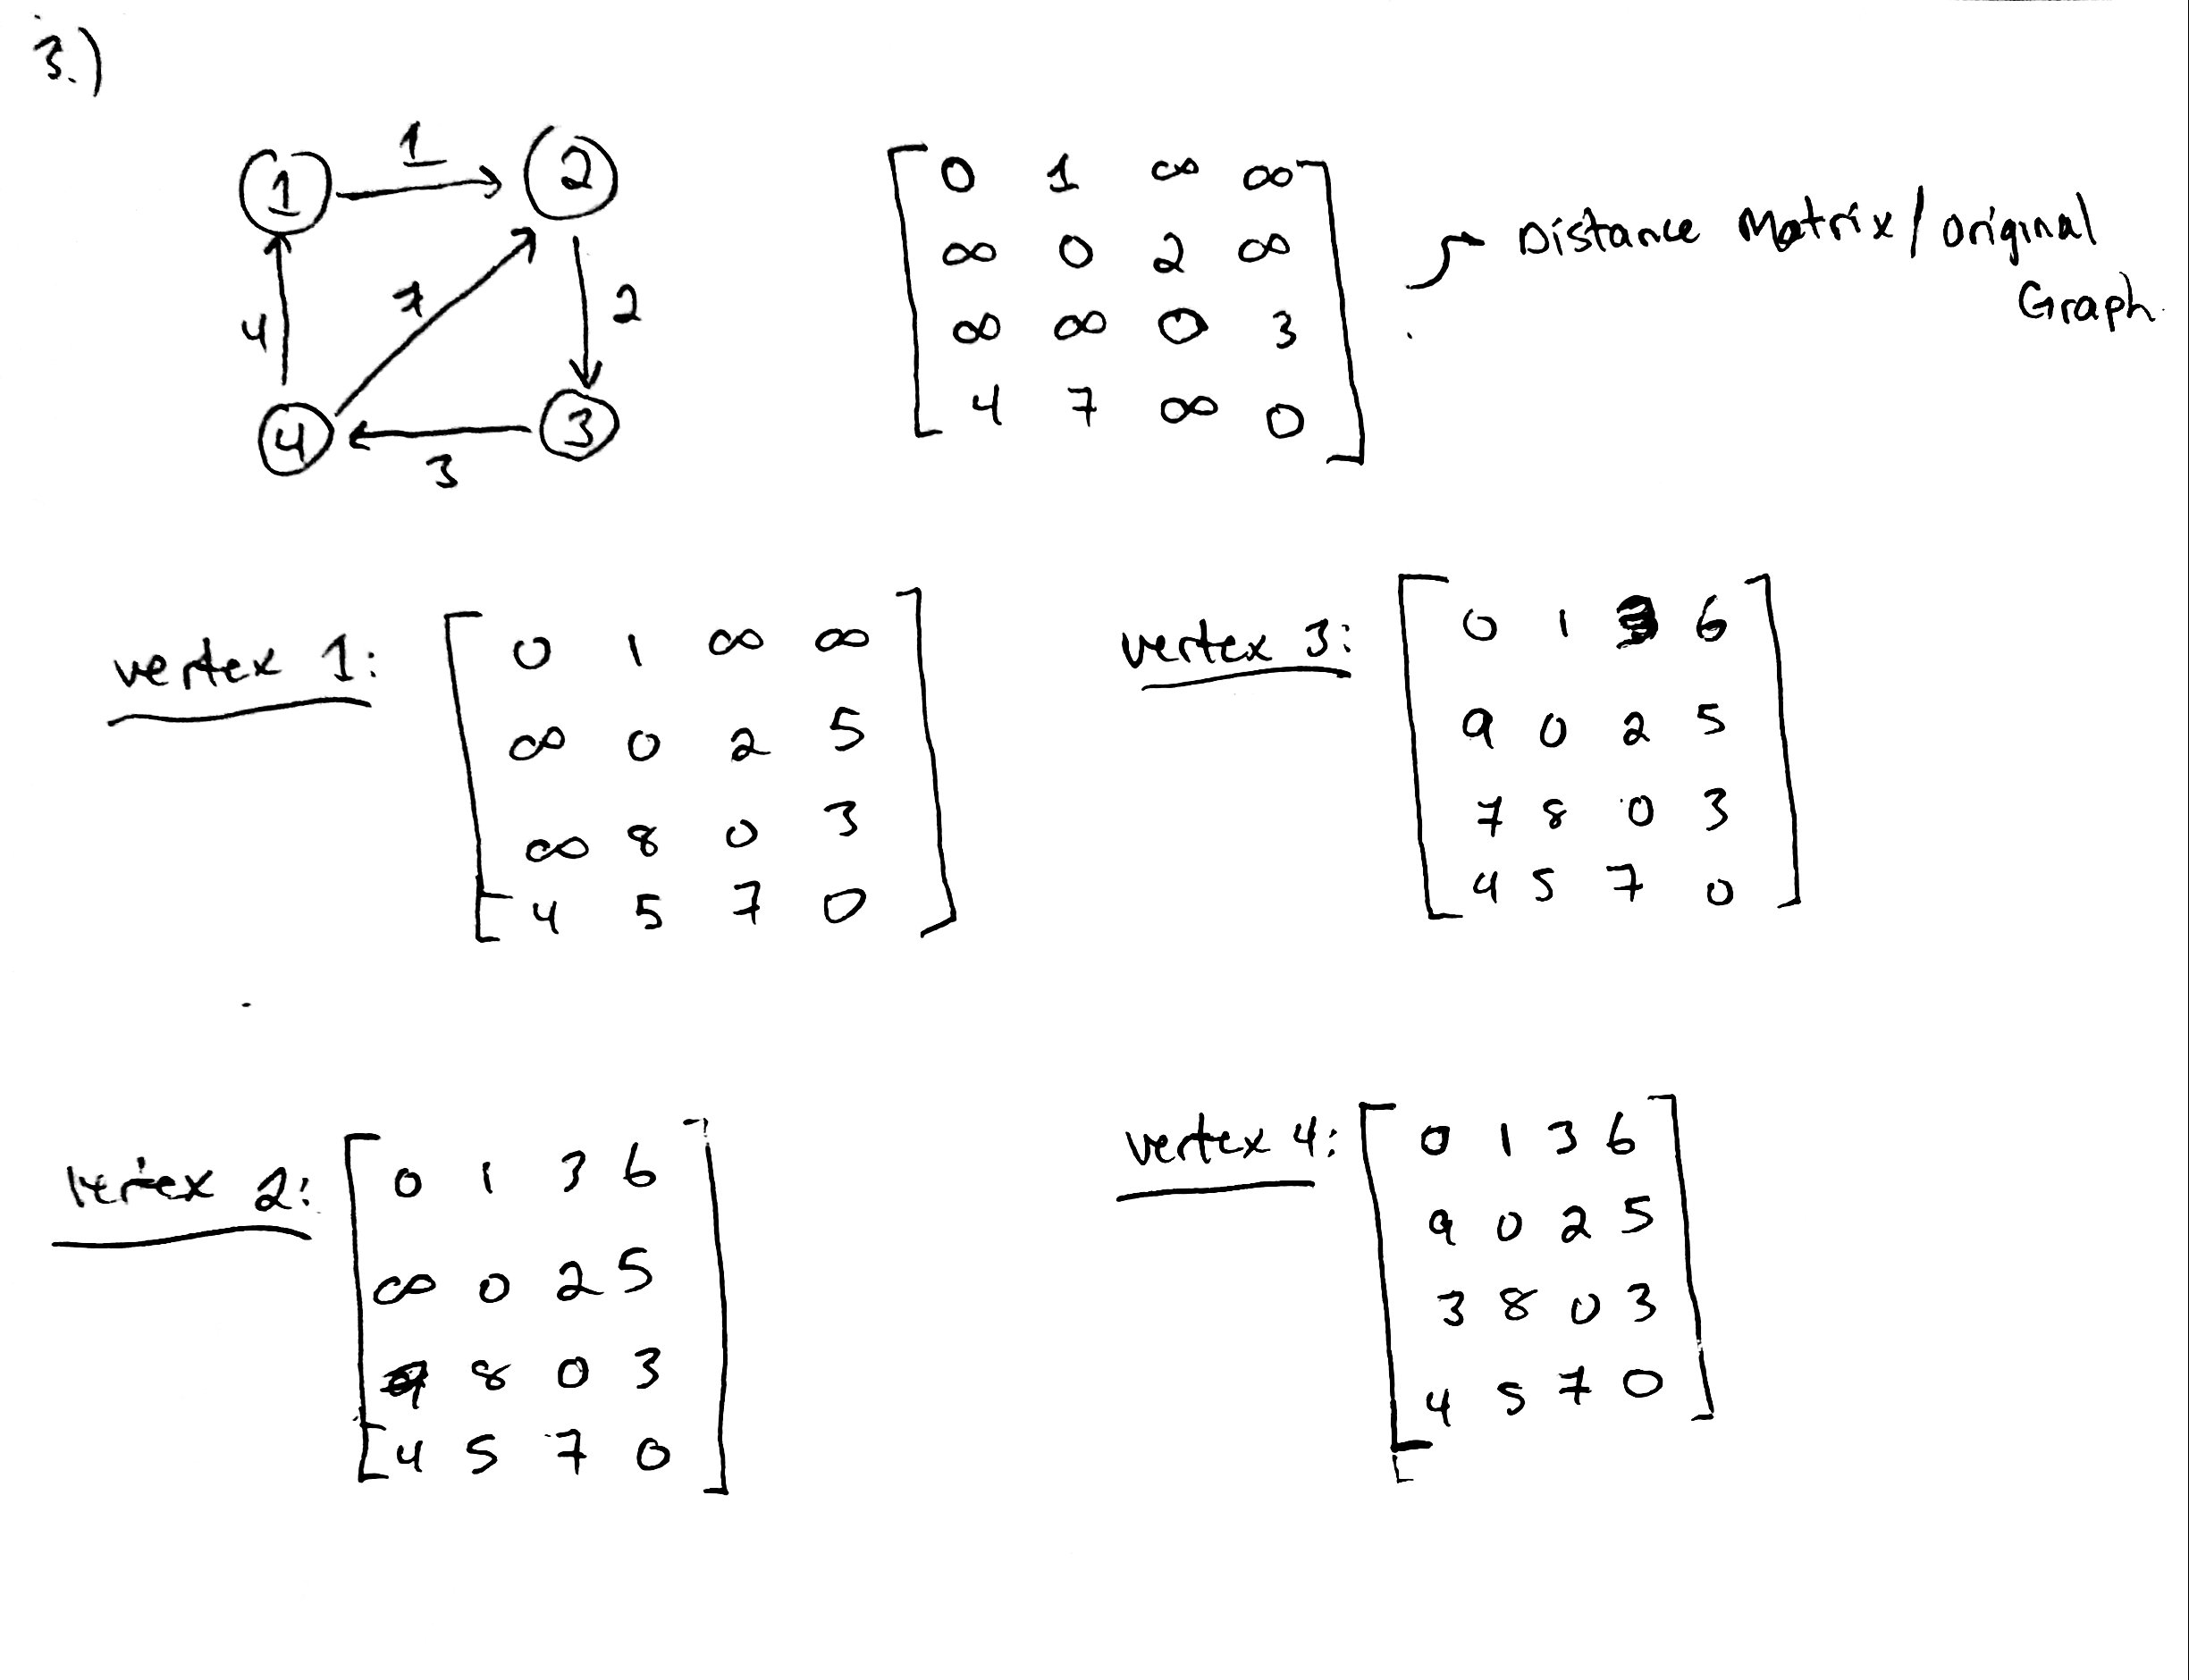 3.)
1 1 2
4 7 2
4 3 3
0 1 ∞ ∞
∞ 0 2 ∞
∞ ∞ 0 3
4 7 ∞ 0
Distance Matrix/original
Graph.
vertex 1:
0 1 ∞ ∞
∞ 0 2 5
∞ 8 0 3
4 5 7 0
vertex 2:
0 1 3 6
∞ 0 2 5
8 0 3
4 5 7 0
vertex 3:
0 1 3 6
9 0 2 5
7 8 0 3
4 5 7 0
vertex 4:
0 1 3 6
9 0 2 5
3 8 0 3
4 5 7 0